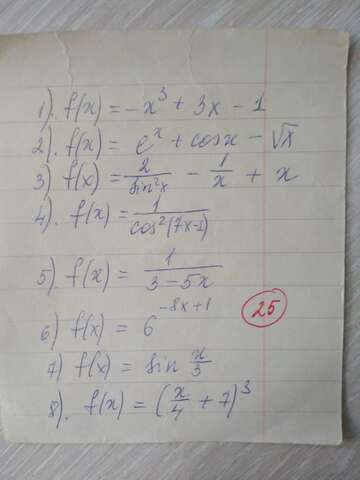 1). f(x) = -x³ + 3x - 1
2). f(x) = eˣ + cosx - √x
3) f(x) = 2/sin²x - 1/x + x
4). f(x) = 1/cos²(7x-1)
5) f(x) = 1/(3-5x)
25
6) f(x) = 6^(-8x+1)
7) f(x) = sin x/3
8). f(x) = (x/4 + 7)³